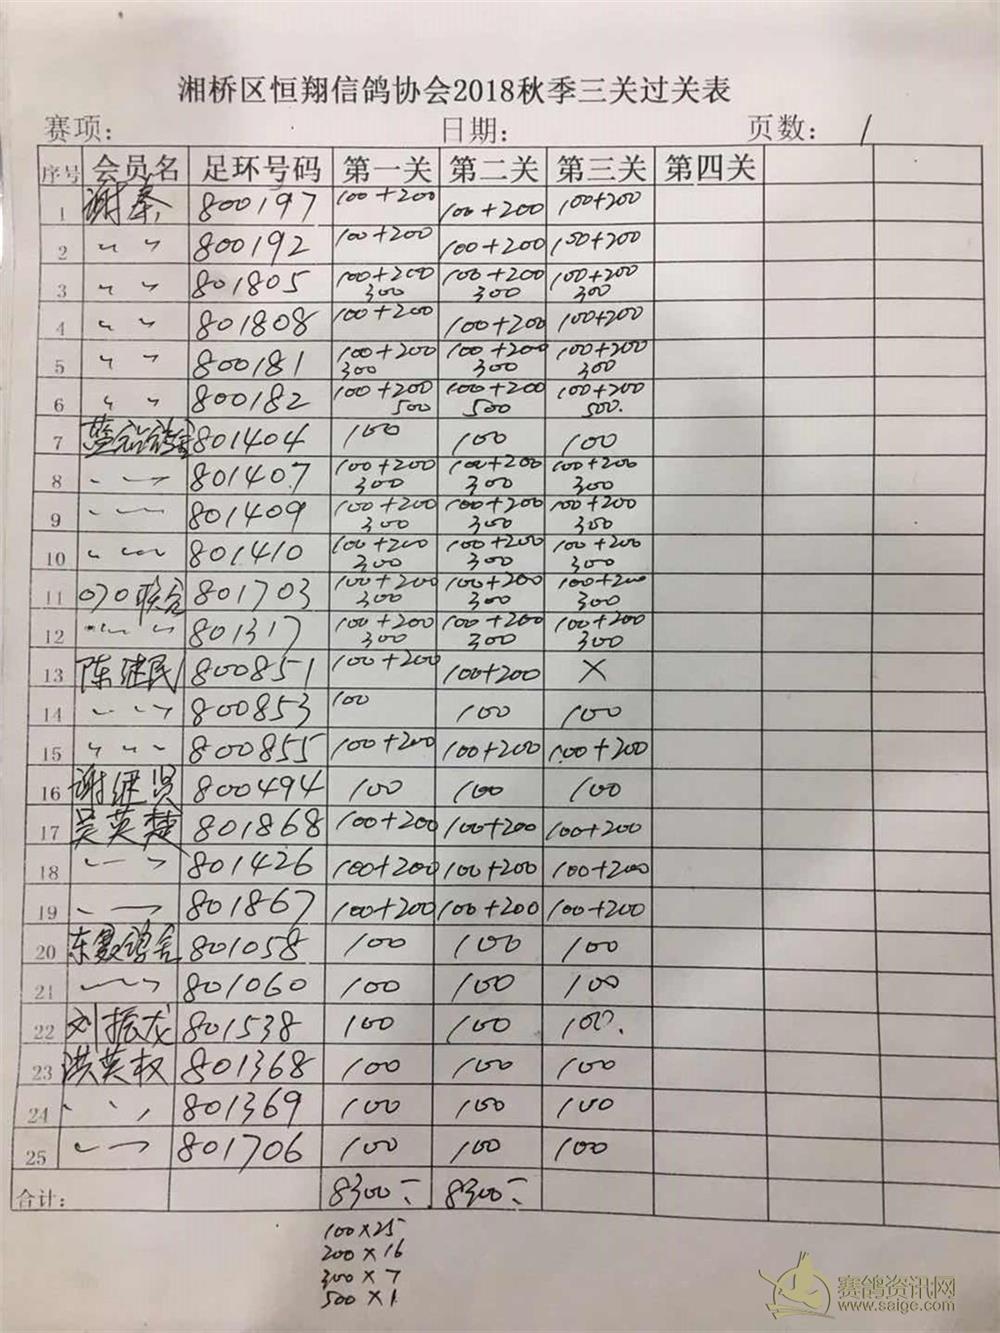 湘桥区恒翔信鸽协会2018秋季三关过关表
赛项: 日期: 页数: 1
序号 会员名 足环号码 第一关 第二关 第三关 第四关
1 谢秦 800197 100+200 100+200 100+200
2 〃 〃 800192 100+200 100+200 100+200
3 〃 〃 801805 100+200 300 100+200 300 100+200 300
4 〃 〃 801808 100+200 100+200 100+200
5 〃 〃 800181 100+200 300 100+200 300 100+200 300
6 〃 〃 800182 100+200 500 100+200 500 100+200 500.
7 801404 100 100 100
8 801407 100+200 300 100+200 300 100+200 300
9 801409 100+200 300 100+200 300 100+200 300
10 801410 100+200 300 100+200 300 100+200 300
11 070联合 801703 100+200 300 100+200 300 100+200 300
12 801317 100+200 300 100+200 300 100+200 300
13 陈继民 800851 100+200 100+200 ×
14 800853 100 100 100
15 〃 〃 〃 800855 100+200 100+200 100+200
16 谢继贤 800494 100 100 100
17 吴英楚 801868 100+200 100+200 100+200
18 801426 100+200 100+200 100+200
19 801867 100+200 100+200 100+200
20 801058 100 100 100
21 801060 100 100 100
22 刘振龙 801538 100 100 100.
23 洪英权 801368 100 100 100
24 801369 100 100 100
25 801706 100 100 100
合计: 8300 8300
100×25
200×16
300×7
500×1
赛鸽资讯网
www.saige.com